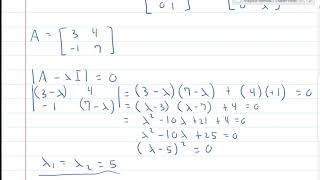 [0 1] [0 λ]
A = [3 4
-1 7]
|A - λI| = 0
|(3-λ) 4
-1 (7-λ)| = (3-λ)(7-λ) + (4)(+1) = 0
= (λ-3)(λ-7) + 4 = 0
= λ² - 10λ + 21 + 4 = 0
λ² - 10λ + 25 = 0
(λ-5)² = 0
λ₁ = λ₂ = 5